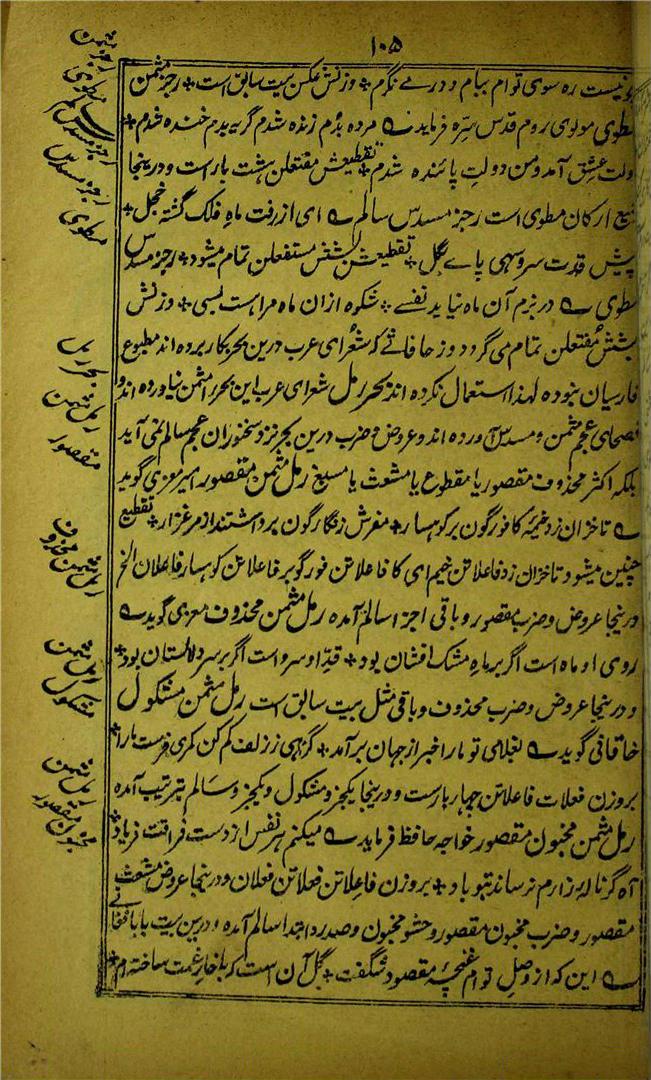 ۱۰۵
نیست ره سوی توام بیام و در مے نگرم * وزنش عکس بیت سابق است * رجز مثمن
مطوی مولوی روم قدس سره فرماید ے مرده بدم زنده شدم گریه بدم خنده شدم *
دولت عشق آمد و من دولت پائنده شدم * تقطیعش مفتعلن هشت بار است و درینجا
جمیع ارکان مطوی است رجز مسدس سالم ے ای از رفت ماه فلک گشته خجل *
پیش قدت سرو سهی پاے بگل * تقطیعش بشش مستفعلن تمام میشود * رجز مسدس
مطوی ے در بزم آن ماه نیاید نفسے * شکوه ازان ماه مرا هست بسی * وزنش
بشش مفتعلن تمام می گردد و زحافاتے که شعرای عرب درین بحر بکار برده اند مطبوع
فارسیان نبوده لهذا استعمال نکرده اند بحر رمل شعرای عرب این بحر را مثمن نیاورده اند و
فصحای عجم مثمن و مسدس آورده اند و عروض و ضرب درین بحر نزد سخنوران عجم سالم نمی آید
بلکه اکثر محذوف مقصور یا مقطوع یا مشعث یا مسبغ رمل مثمن مقصور امیر معزی گوید
ے تا خزان زد خیمهٔ کافورگون بر کوهسار * مفرش زنگارگون برداشتند از مرغزار * تقطیع
چنین میشود تا خزان زد فاعلاتن خیم ای کا فاعلاتن فورگو بر فاعلاتن کوهسار فاعلان الخ
درینجا عروض و ضرب مقصور و باقی اجزا سالم آمده رمل مثمن محذوف معزی گوید ے
روی او ماه است اگر بر ماه مشک افشان بود * قد او سرو است اگر بر سرو لالستان بود *
و درینجا عروض و ضرب محذوف و باقی مثل بیت سابق است رمل مثمن مشکول
خاقانی گوید ے بغلامی تو ما را خبر از جهان برآمد * گرهی ز زلف کم کن کمری فرست ما را *
بروزن فعلات فاعلاتن چهار بار است و درینجا یکجز و مشکول و یکجز و سالم بترتیب آمده
رمل مثمن مخبون مقصور خواجه حافظ فرماید ے میکنم هر نفس از دست فراقت فریاد *
آه گر نالهٔ زارم نرساند بتو باد * بروزن فاعلاتن فعلاتن فعلاتن فعلان و درینجا عروض مشعث
مقصور و ضرب مخبون مقصور و حشو مخبون و صدر و ابتدا سالم آمده و درین بیت بابا فغانی
ے این که از وصل توام غنچهٔ مقصود شگفت * گل آن است که با خار غمت ساخته ام *
رجز مثمن
مطوی
رجز مسدس سالم
رجز مسدس
مطوی
بحر رمل
رمل مثمن
مقصور
رمل مثمن محذوف
رمل مثمن
مشکول
رمل مثمن
مخبون مقصور